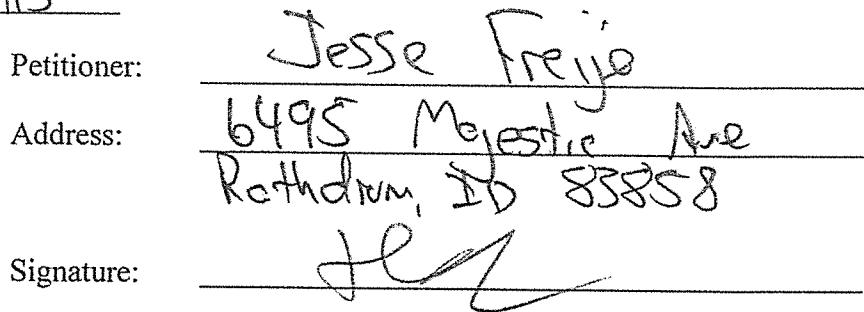 Petitioner: Jesse Freije
Address: 6495 Majestic Ave
Rathdrum, ID 83858
Signature: